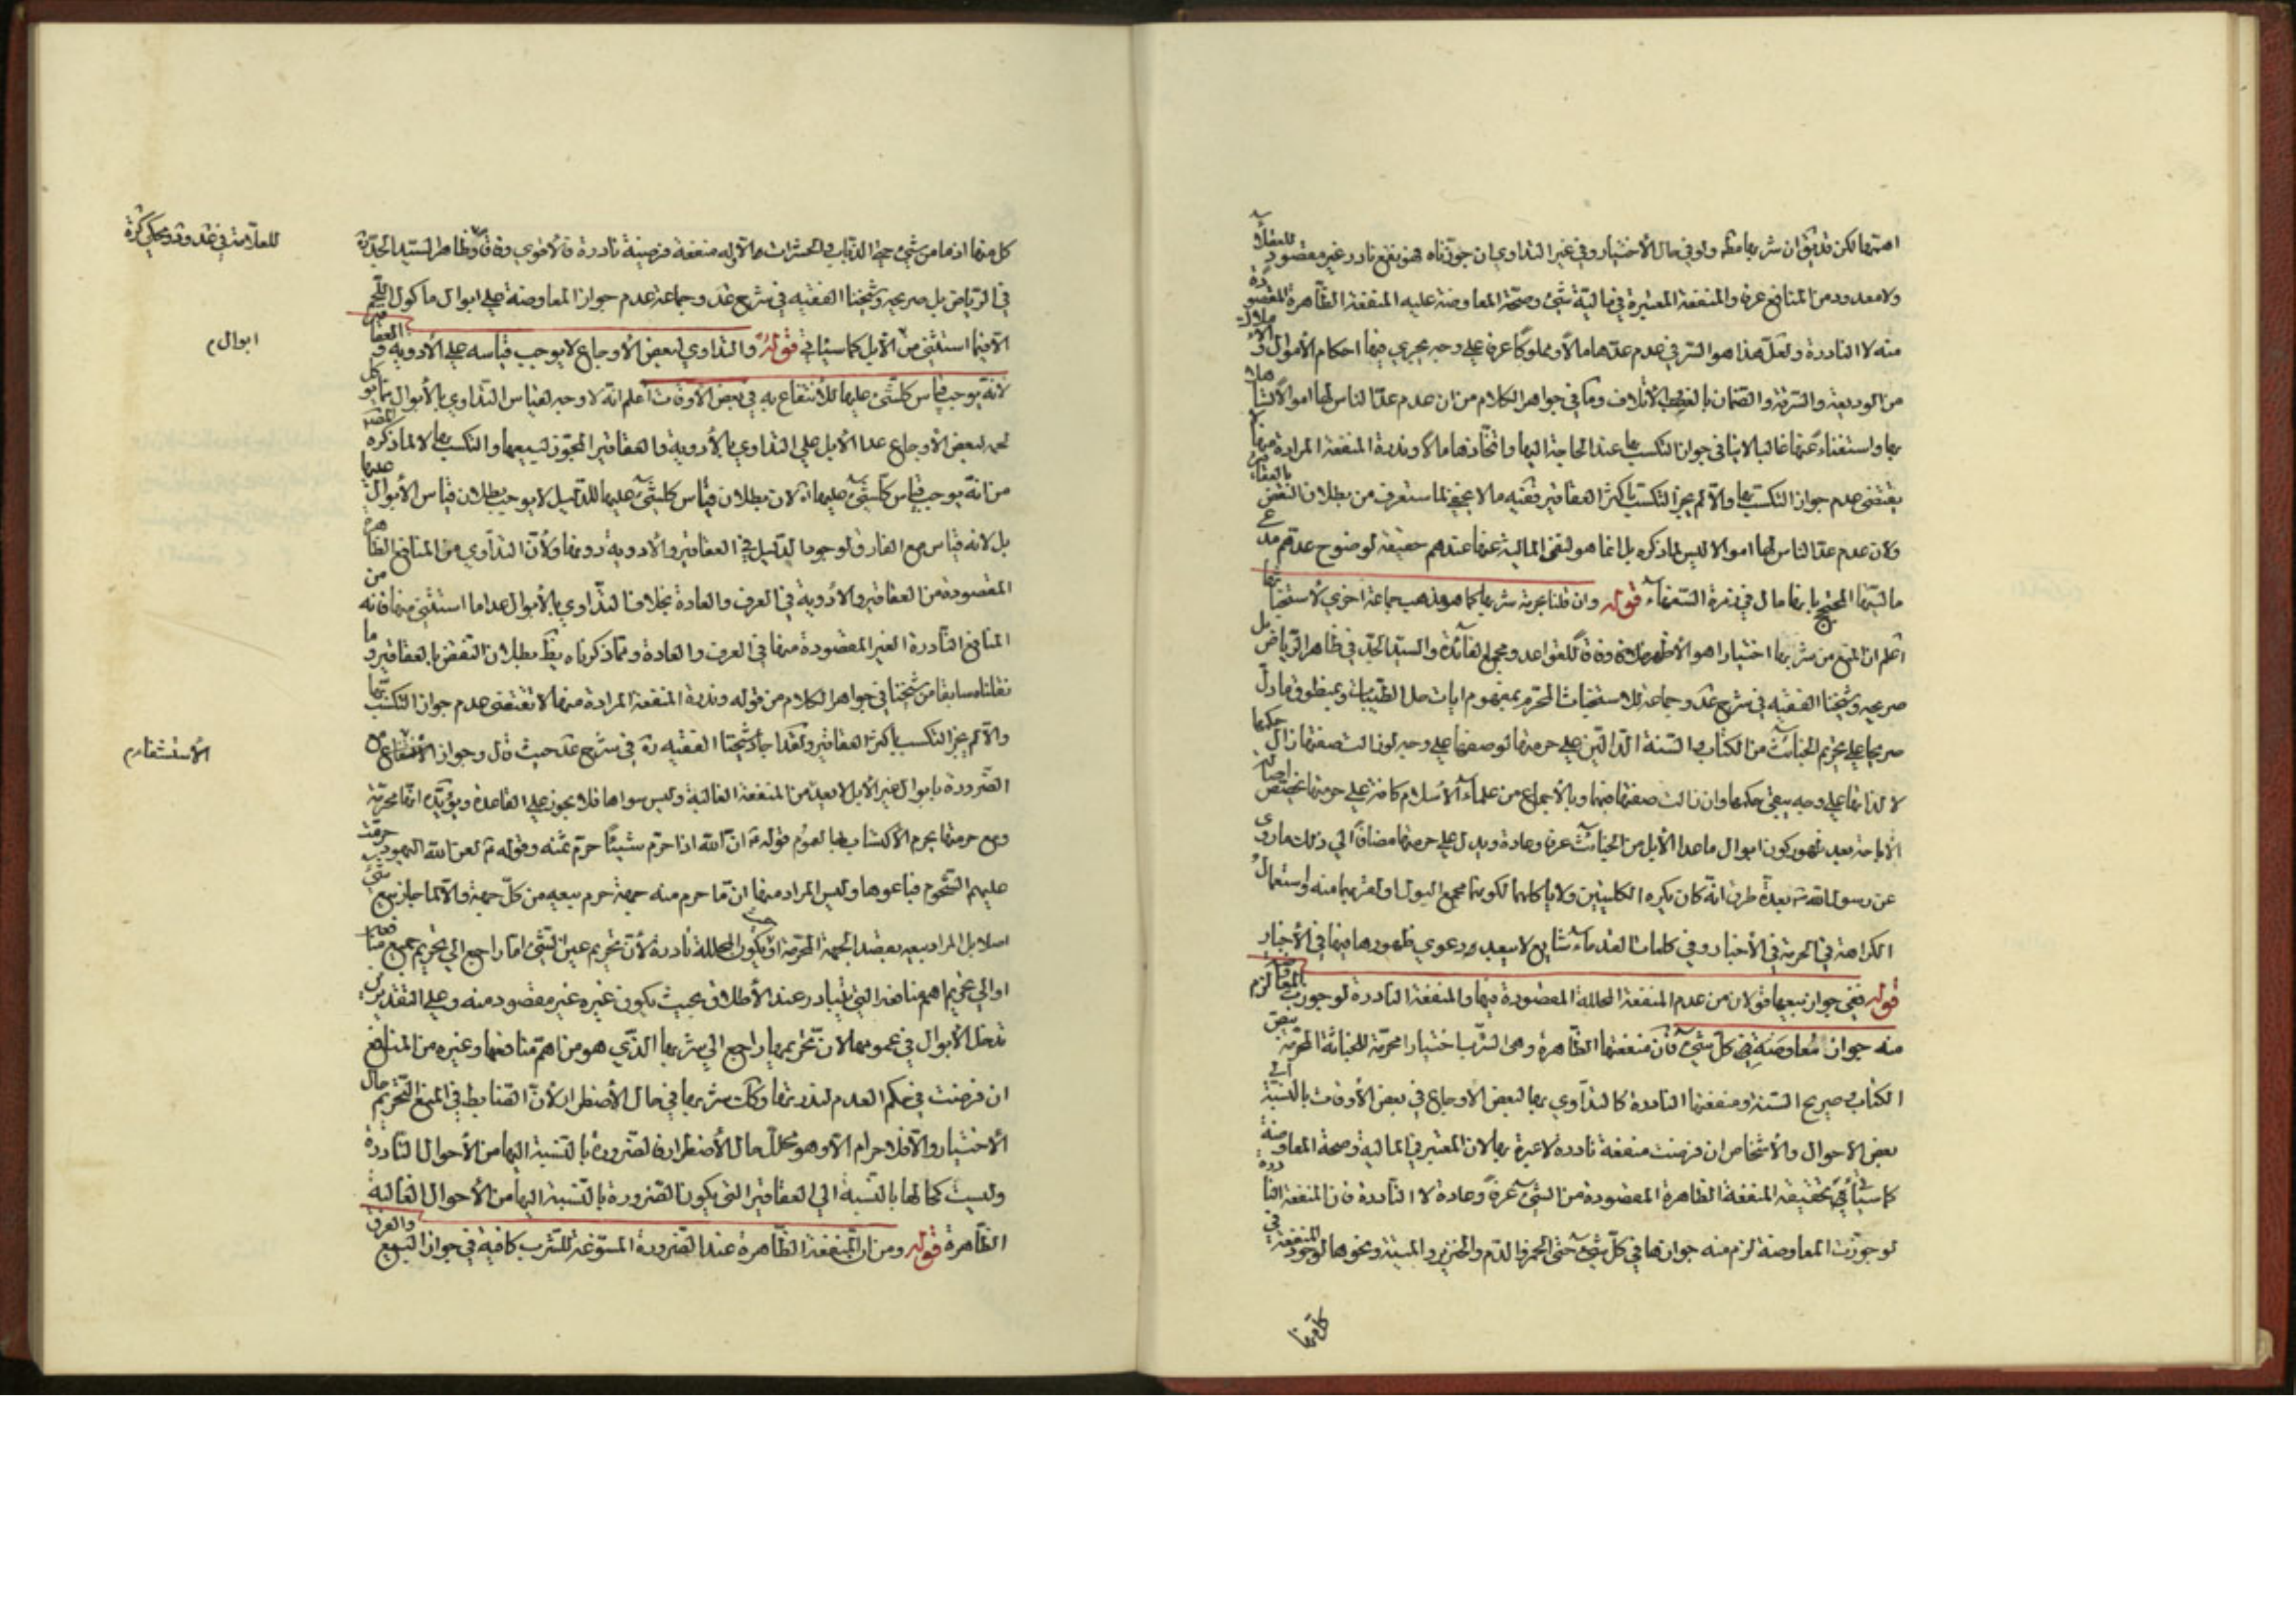 اهتها لكن قد يقال ان شربها مط ولو في حال الأختيار وفي غير التداوي ان جوزناه فهو نفع نادر غير مقصود للعقلاء
ولا معدود من المنافع عرفا والمنفعة المعتبرة في مالية شئ وصحة المعاوضة عليه المنفعة الظاهرة المقصودة
منه لا النادرة ولعل هذا هو السر في عدم عدها مالا ومملوكا عرفا على وجه يجري فيها احكام الأموال والأملاك
من الوديعة والسرقة والضمان بالأتلاف وما في جواهر الكلام من ان عدم عد الناس لها اموالا لابتذالها
بها واستغناء عنها غالبا لا ينافي جواز التكسب بها عند الحاجة اليها واتخاذها مالا وندرة المنفعة المرادة منها لا
يقتضي عدم جواز التكسب بها والا لم يجز التكسب باكثر العقاقير ففيه ما لا يخفى لما ستعرف من بطلان النقض بالعقاقير
ولان عدم عد الناس لها اموالا ليس لما ذكره بل انما هو لنفي المالية عنها عندهم حقيقة لوضوح عدم
ماليتها المحتج بابها مال في زمرة السفهاء قوله وان قلنا بحرمة شربها كما هو مذهب جماعة اخرى لاستخباثها
اعلم ان المنع من شربها اختيارا هو الأظهر وفاقا للقواعد ومجمع الفائدة والسيد الجد في ظاهر الرياض بل
صريحه وشيخنا الفقيه في شرح عد وجماعة للاستخباث المحرم بمفهوم ايات حل الطيبات وبمنطوق ما دل
صريحا على تحريم الخبائث من الكتاب والسنة الدالين على حرمتها لوصفها على وجه لو زالت صفتها زال حكمها
لا لذاتها على وجه يبقى حكمها وان زالت صفتها منها وبالأجماع من علماء الأسلام كافة على حرمتها
الأباحة بعد ظهور كون ابوال ما عدا الأبل من الخبائث عرفا وعادة ويدل على حرمتها مضافا الى ذلك ما روى
عن رسول الله ص بعدة طرق انه كان يكره الكليتين ولا ياكلهما لكونهما مجمع البول ولقربهما منه واستعمال
الكراهة في الحرمة في الأخبار وفي كلمات القدماء شايع لا يبعد دعوى ظهورها فيها في الأخبار
قوله ففي جواز بيعها قولان من عدم المنفعة المحللة المقصودة فيها والمنفعة النادرة لو جوزت المعاوضة لزم
منه جواز معاوضة كل شئ فان منفعتها الظاهرة وهي الشرب اختيارا محرمة للخباثة المحرمة بنص
الكتاب وصريح السنة ومنفعتها النادرة كالتداوي بها لبعض الأوجاع في بعض الأوقات بالنسبة الى
بعض الأحوال والأشخاص ان فرضت منفعة نادرة لا عبرة بها لان المعتبر في المالية وصحة المعاوضة
كما سيأتي تحقيقه المنفعة الظاهرة المقصودة من الشئ عرفا وعادة لا النادرة فان المنفعة النادرة
لو جوزت المعاوضة لزم منه جوازها في كل شئ حتى الخمر والدم والخنزير والميتة ونحوها لوجود المنفعة في
كل منها
كل منها اذ ما من شئ حتى الذباب والحشرات الا وله منفعة فرضية نادرة فالأقوى وفاقا لظاهر السيد الجد ره
في الرياض بل صريحه وشيخنا الفقيه في شرح عد وجماعة عدم جواز المعاوضة على ابوال ماكول اللحم
الا فيما استثني من الأبل كما سيأتي قوله والتداوي لبعض الأوجاع لا يوجب قياسه على الأدوية والعقاقير
لانه يوجب قياس كل شئ عليها للانتفاع به في بعض الأوقات اعلم انه لا وجه لقياس التداوي بالأبوال
لبعض الأوجاع عدا الأبل على التداوي بالأدوية والعقاقير المجوز لبيعها والتكسب بها لا لما ذكره المص
من انه يوجب قياس كل شئ عليها لان بطلان قياس كل شئ عليها للدليل لا يوجب بطلان قياس الأبوال عليها
بل لانه قياس مع الفارق لوجود الدليل في العقاقير والأدوية دونها ولأن التداوي من المنافع الظاهرة
المقصودة من العقاقير والأدوية في العرف والعادة بخلاف التداوي بالأبوال عدا ما استثني منها فانه من
المنافع النادرة الغير المقصودة منها في العرف والعادة ومما ذكرناه يظهر بطلان النقض بالعقاقير وما
نقلناه سابقا من شيخنا في جواهر الكلام من قوله وندرة المنفعة المرادة منها لا تقتضي عدم جواز التكسب بها
والا لم يجز التكسب باكثر العقاقير ولقد اجاد شيخنا الفقيه ره في شرح عد حيث قال وجواز الانتفاع
الضرورة بابوال غير الأبل لا يعد من المنفعة الغالبة وليس سواها فلا يجوز على القاعدة ويؤيده انها محرمة
ومع حرمتها يحرم الأكتساب بها لعموم قوله ص ان الله اذا حرم شيئا حرم ثمنه وقوله ص لعن الله اليهود حرمت
عليهم الشحوم فباعوها وليس المراد منها ان ما حرم منه جهة حرم بيعه من كل جهة والا لما جاز بيع شئ
اصلا بل المراد بيعه بقصد الجهة المحرمة او يكون المحللة نادرة لأن تحريم عين الشئ اما راجع الى تحريم جميع منافعه
او الى تحريم اهم منافعه التي يتبادر عند الأطلاق بحيث يكون غيره غير مقصود منه وعلى التقديرين
تدخل الأبوال في عمومها لان تحريمها راجع الى شربها الذي هو من اهم منافعها وغيره من المنافع
ان فرضت في حكم العدم لندرتها وكك شربها في حال الأضطرار لأن الضابط في المنع التحريم حال
الأختيار والا فلا حرام الا وهو محلل حال الأضطرار فالضرورة بالنسبة اليها من الأحوال النادرة
وليست كحالها بالنسبة الى العقاقير التي يكون الضرورة بالنسبة اليها من الأحوال الغالبة
الظاهرة قوله ومن ان المنفعة الظاهرة عند الضرورة المسوغة للشرب كافية في جواز البيع والفرق
ابوال م
الأستشفاء م